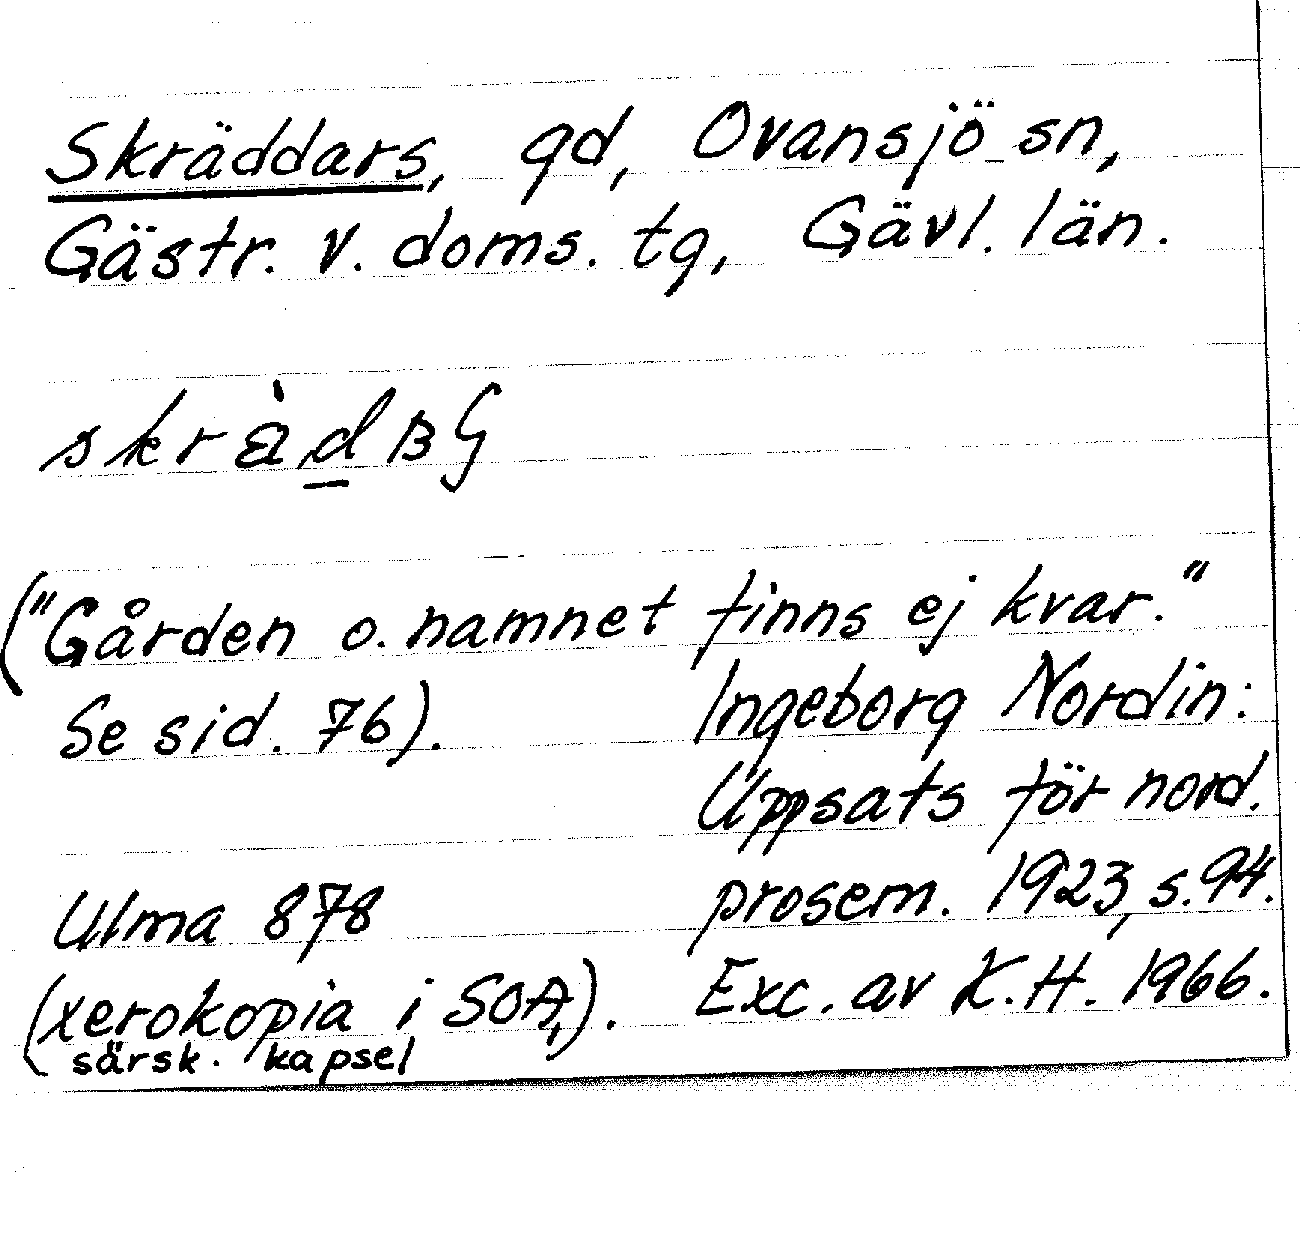 Skräddars, gd, Ovansjö sn,
Gästr. v. doms. tg, Gävl. län.
("Gården o. namnet finns ej kvar."
Se sid. 76).
Ingeborg Nordin:
Uppsats för nord.
Ulma 878
prosem. 1923, s. 94.
(xerokopia i SOA,).
Exc. av K.H. 1966.
särsk. kapsel